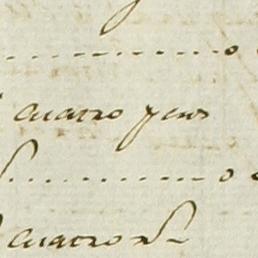 ............... o
cuatro pesos
............... o
cuatro rs